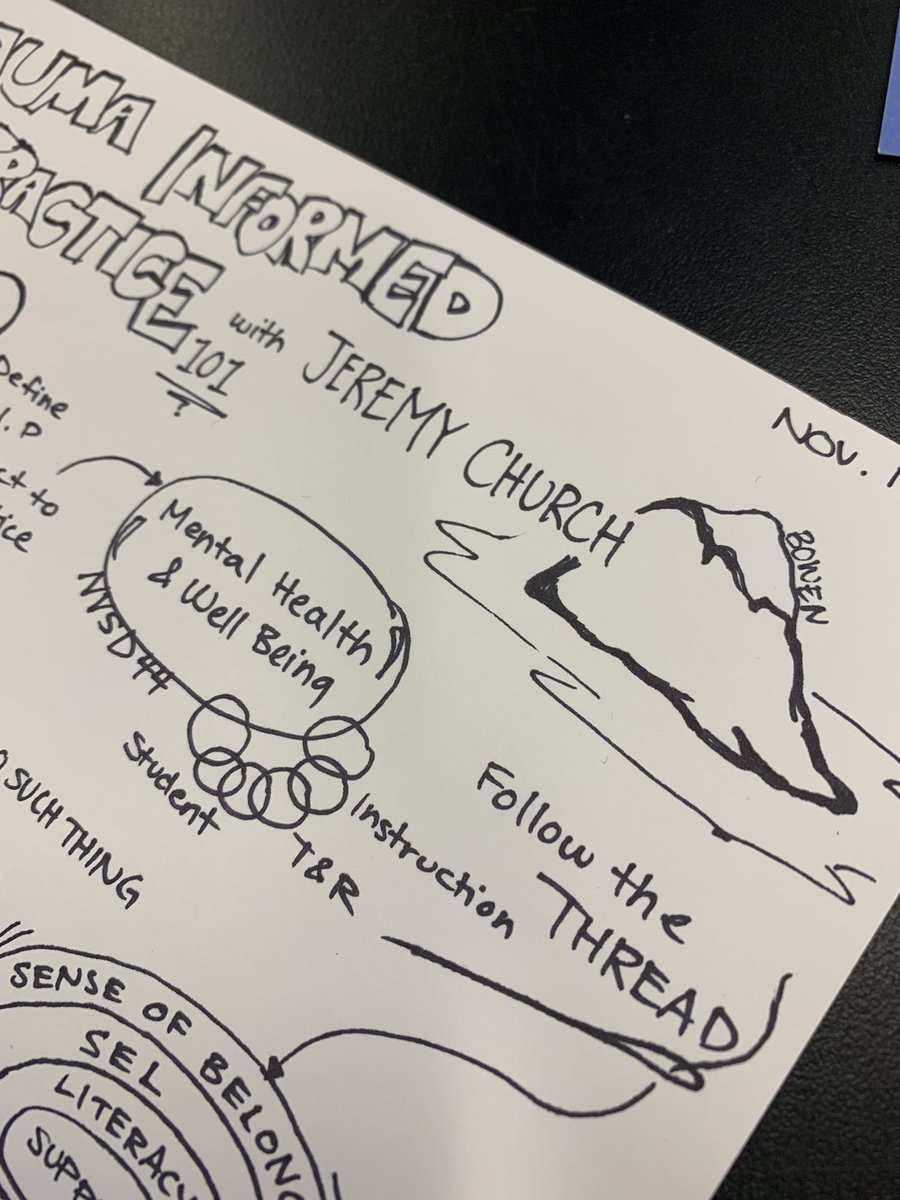 UMA INFORMED
PRACTICE 101
with JEREMY CHURCH
NOV. 1
BOWEN
Define
. P
ct to
ice
Mental Health
& Well Being
NVSD44
Student
T&R
Instruction
Follow the
THREAD
SUCH THING
SENSE OF BELONG
SEL
LITERACY
SUPP